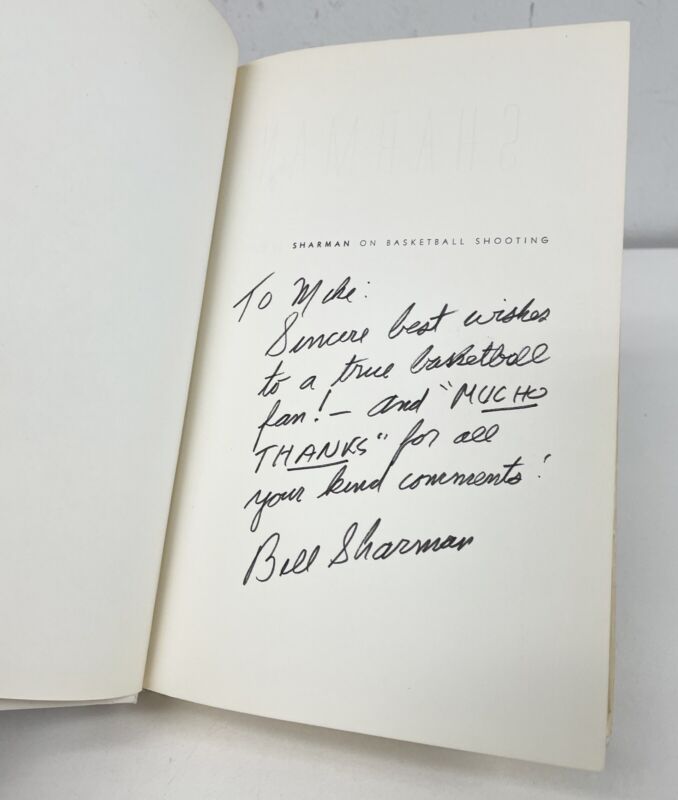 SHARMAN
SHARMAN ON BASKETBALL SHOOTING
To Mike:
Sincere best wishes
to a true basketball
fan! — and "MUCHO
THANKS" for all
your kind comments!
Bill Sharman